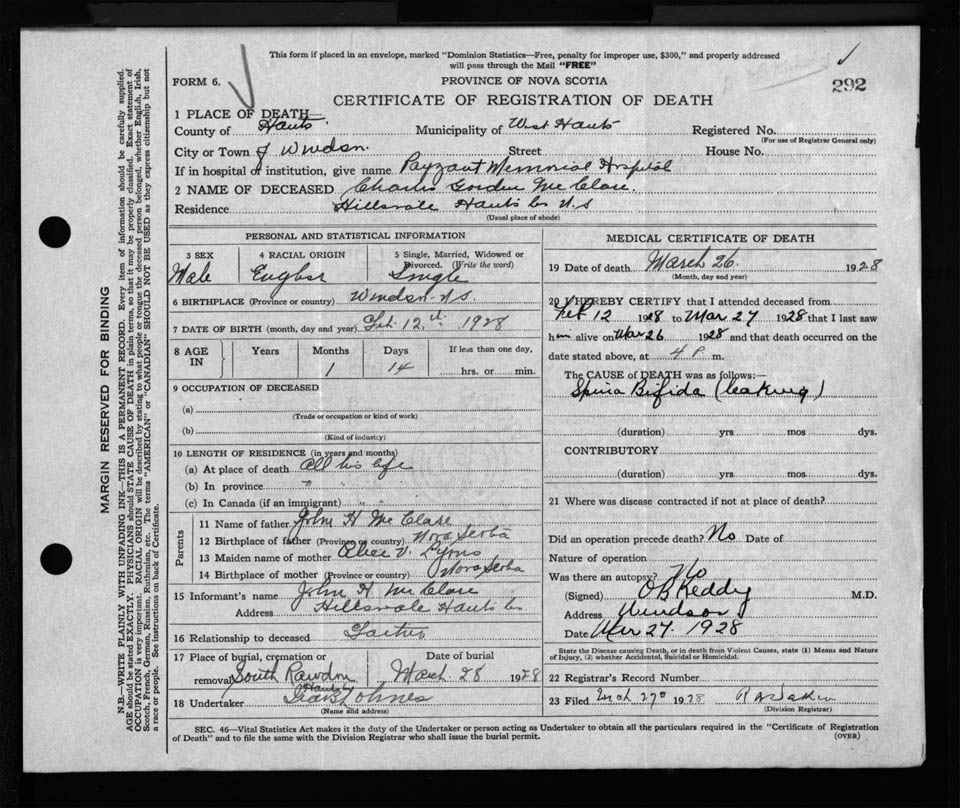 This form if placed in an envelope, marked "Dominion Statistics—Free, penalty for improper use, $300," and properly addressed
will pass through the Mail "FREE"
FORM 6.
PROVINCE OF NOVA SCOTIA
292
CERTIFICATE OF REGISTRATION OF DEATH
1 PLACE OF DEATH—
County of Hants. Municipality of West Hants Registered No.
(For use of Registrar General only)
City or Town of Windsor. Street House No.
If in hospital or institution, give name Payzant Memorial Hospital
2 NAME OF DECEASED Charles Gordon Mc Clare.
Residence Hillsvale Hants Co N.S
(Usual place of abode)
PERSONAL AND STATISTICAL INFORMATION
3 SEX 4 RACIAL ORIGIN 5 Single, Married, Widowed or
Divorced. (Write the word)
Male English Single
6 BIRTHPLACE (Province or country) Windsor N.S.
7 DATE OF BIRTH (month, day and year) Feb. 12 th 1928
8 AGE IN Years Months Days If less than one day,
1 14 hrs. or min.
9 OCCUPATION OF DECEASED
(a)
(Trade or occupation or kind of work)
(b)
(Kind of industry)
10 LENGTH OF RESIDENCE (in years and months)
(a) At place of death All his life
(b) In province "
(c) In Canada (if an immigrant) " "
Parents
11 Name of father John H Mc Clare
12 Birthplace of father (Province or country) Nova Scotia
13 Maiden name of mother Alice V. Lyons
14 Birthplace of mother (Province or country) Nova Scotia
15 Informant's name John H Mc Clare
Address Hillsvale Hants Co
16 Relationship to deceased Father
17 Place of burial, cremation or Date of burial
removal South Rawdon March 28 1928
Hants Co
18 Undertaker Holmes
(Name and address)
MEDICAL CERTIFICATE OF DEATH
19 Date of death March 26. 1928
(Month, day and year)
20 I HEREBY CERTIFY that I attended deceased from
Feb 12 1928 to Mar 27 1928 that I last saw
him alive on Mar 26 1928 and that death occurred on the
date stated above, at 4 P. m.
The CAUSE OF DEATH was as follows:—
Spina Bifida (leaking)
(duration) yrs mos dys.
CONTRIBUTORY
(duration) yrs. mos. dys.
21 Where was disease contracted if not at place of death?
Did an operation precede death? No Date of
Nature of operation
Was there an autopsy? No
(Signed) O B Keddy M.D.
Address Windsor
Date Mar 27. 1928
State the Disease causing Death, or in death from Violent Causes, state (1) Means and Nature
of Injury, (2) whether Accidental, Suicidal or Homicidal.
22 Registrar's Record Number
23 Filed Mch 27th 1928
(Division Registrar)
SEC. 46—Vital Statistics Act makes it the duty of the Undertaker or person acting as Undertaker to obtain all the particulars required in the "Certificate of Registration
of Death" and to file the same with the Division Registrar who shall issue the burial permit. (OVER)
MARGIN RESERVED FOR BINDING
N.B.—WRITE PLAINLY WITH UNFADING INK—THIS IS A PERMANENT RECORD. Every item of information should be carefully supplied.
AGE should be stated EXACTLY. PHYSICIANS should STATE CAUSE OF DEATH in plain terms, so that it may be properly classified. Exact statement of
OCCUPATION is very important. RACIAL ORIGIN will be described by stating to what people or tongue the deceased person belonged, whether English, Irish,
Scotch, French, German, Russian, Ruthenian, etc. The terms "AMERICAN" or "CANADIAN" SHOULD NOT BE USED as they express citizenship but not
a race or people. See instructions on back of Certificate.